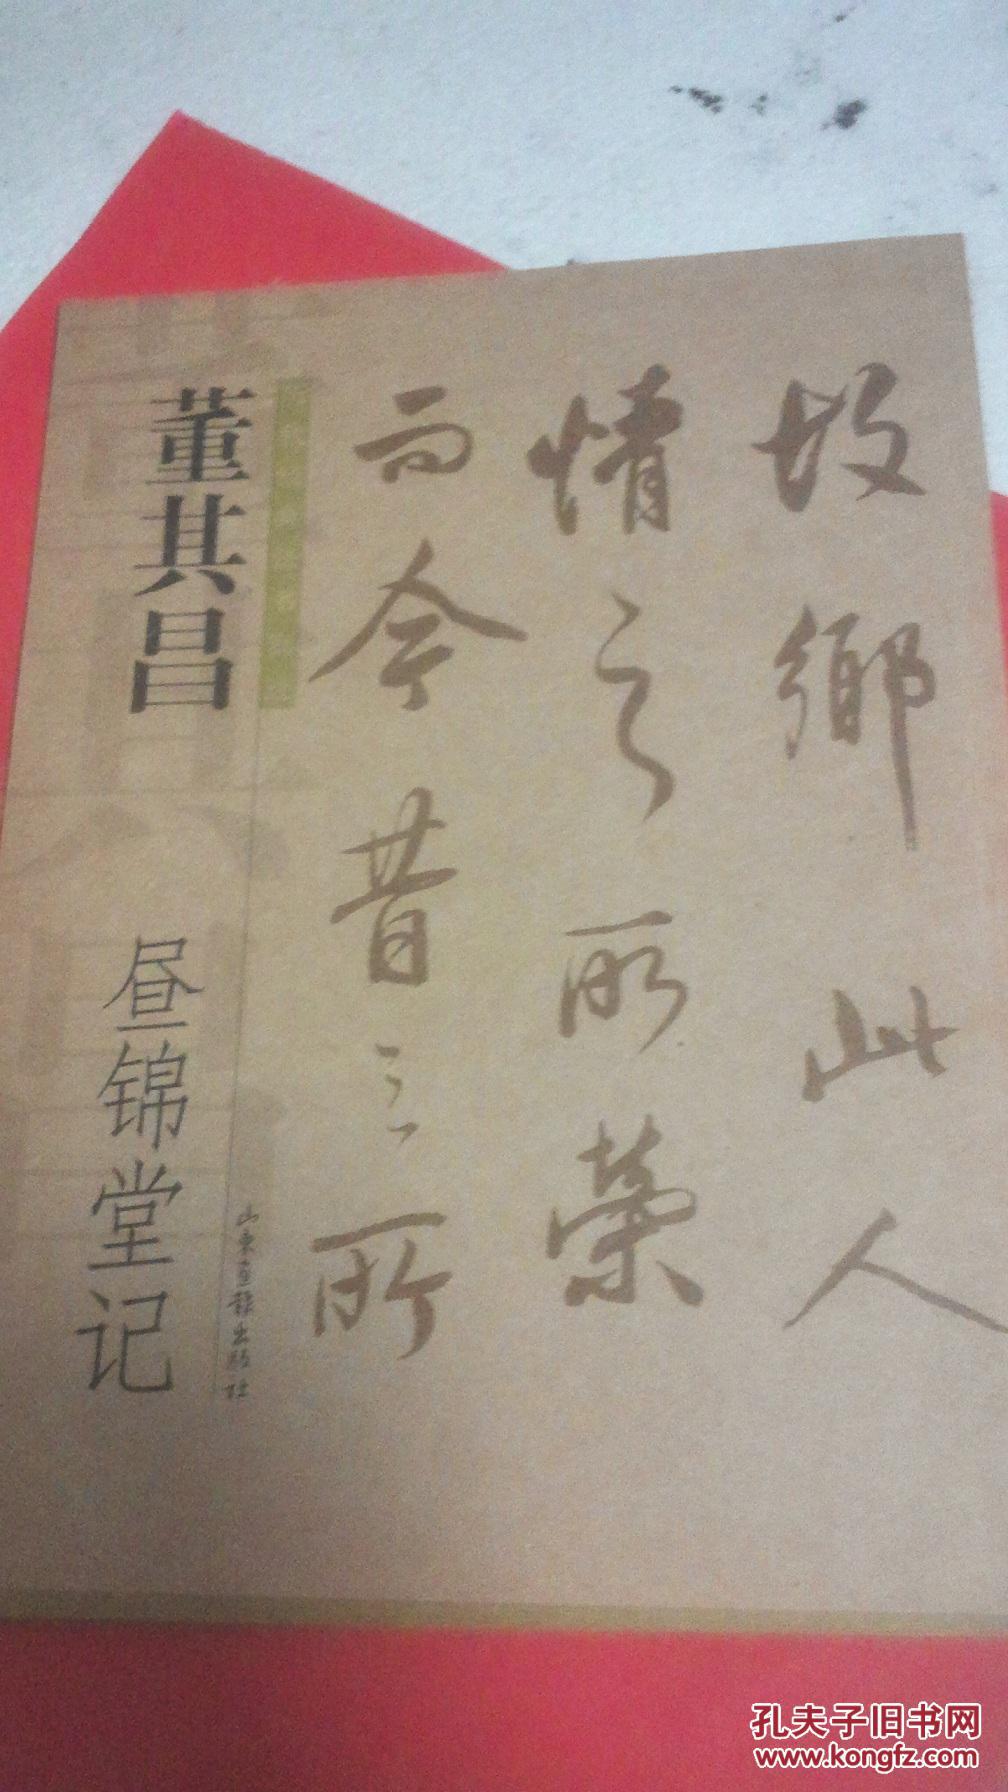 故鄉此人
情之所榮
而今昔之所
董其昌
昼锦堂记
山东画报出版社
孔夫子旧书网
www.kongfz.com